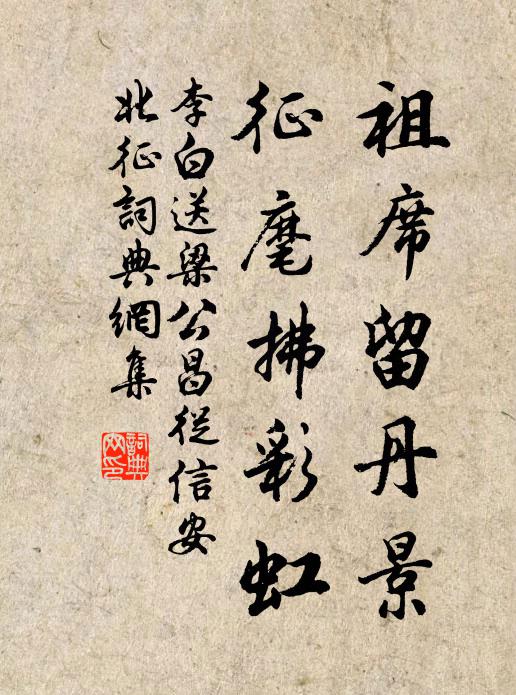 祖席留丹景
征麾拂彩虹
李白送梁公昌從信安
北征詞典網集
詞典
网印